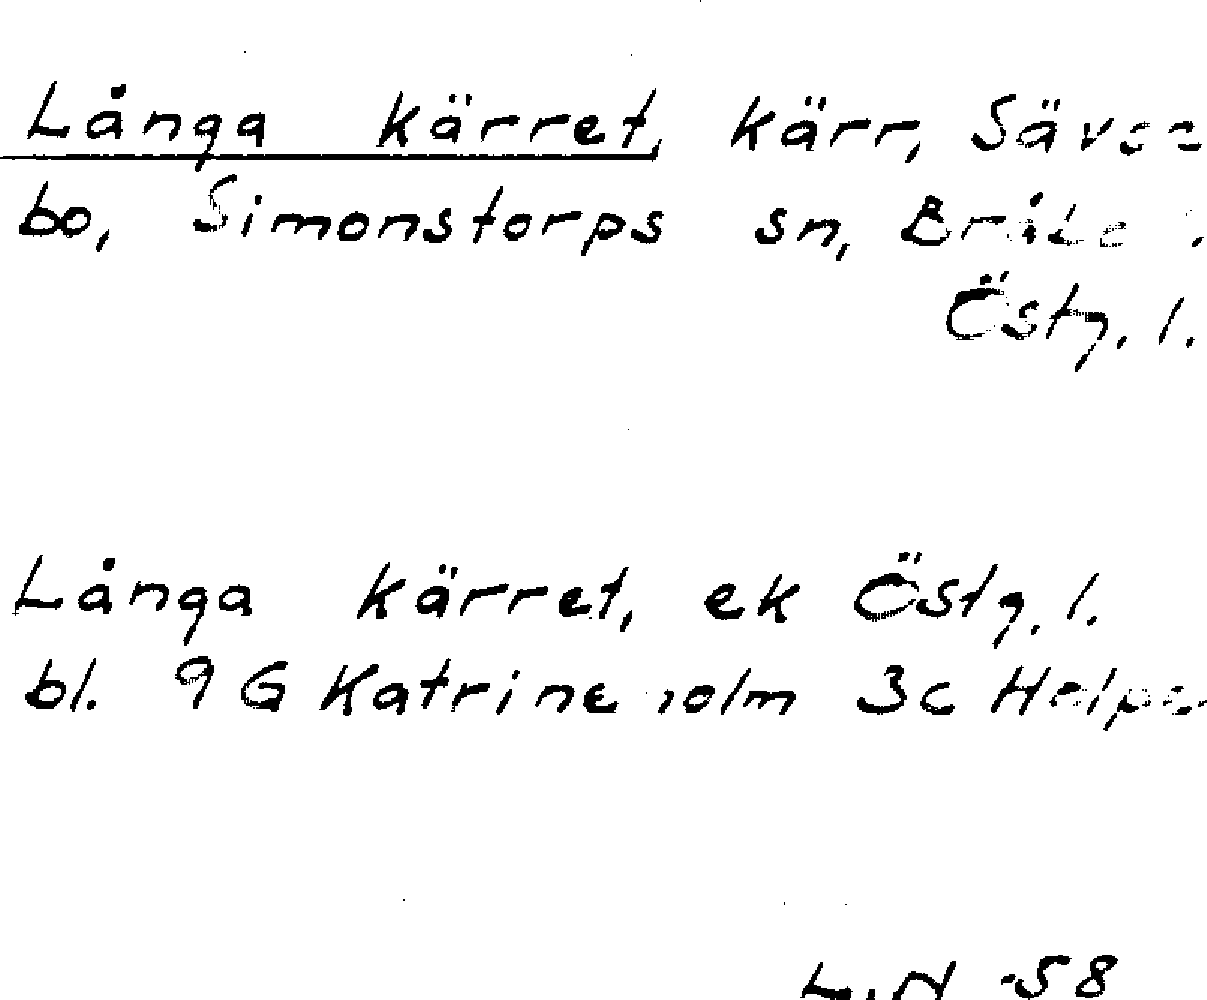 Långa kärret, kärr,
bo, Simonstorps sn,
Östg. l.
Långa kärret, ek Östg. l.
bl. 9 G Katrineholm 3c
L.N -58